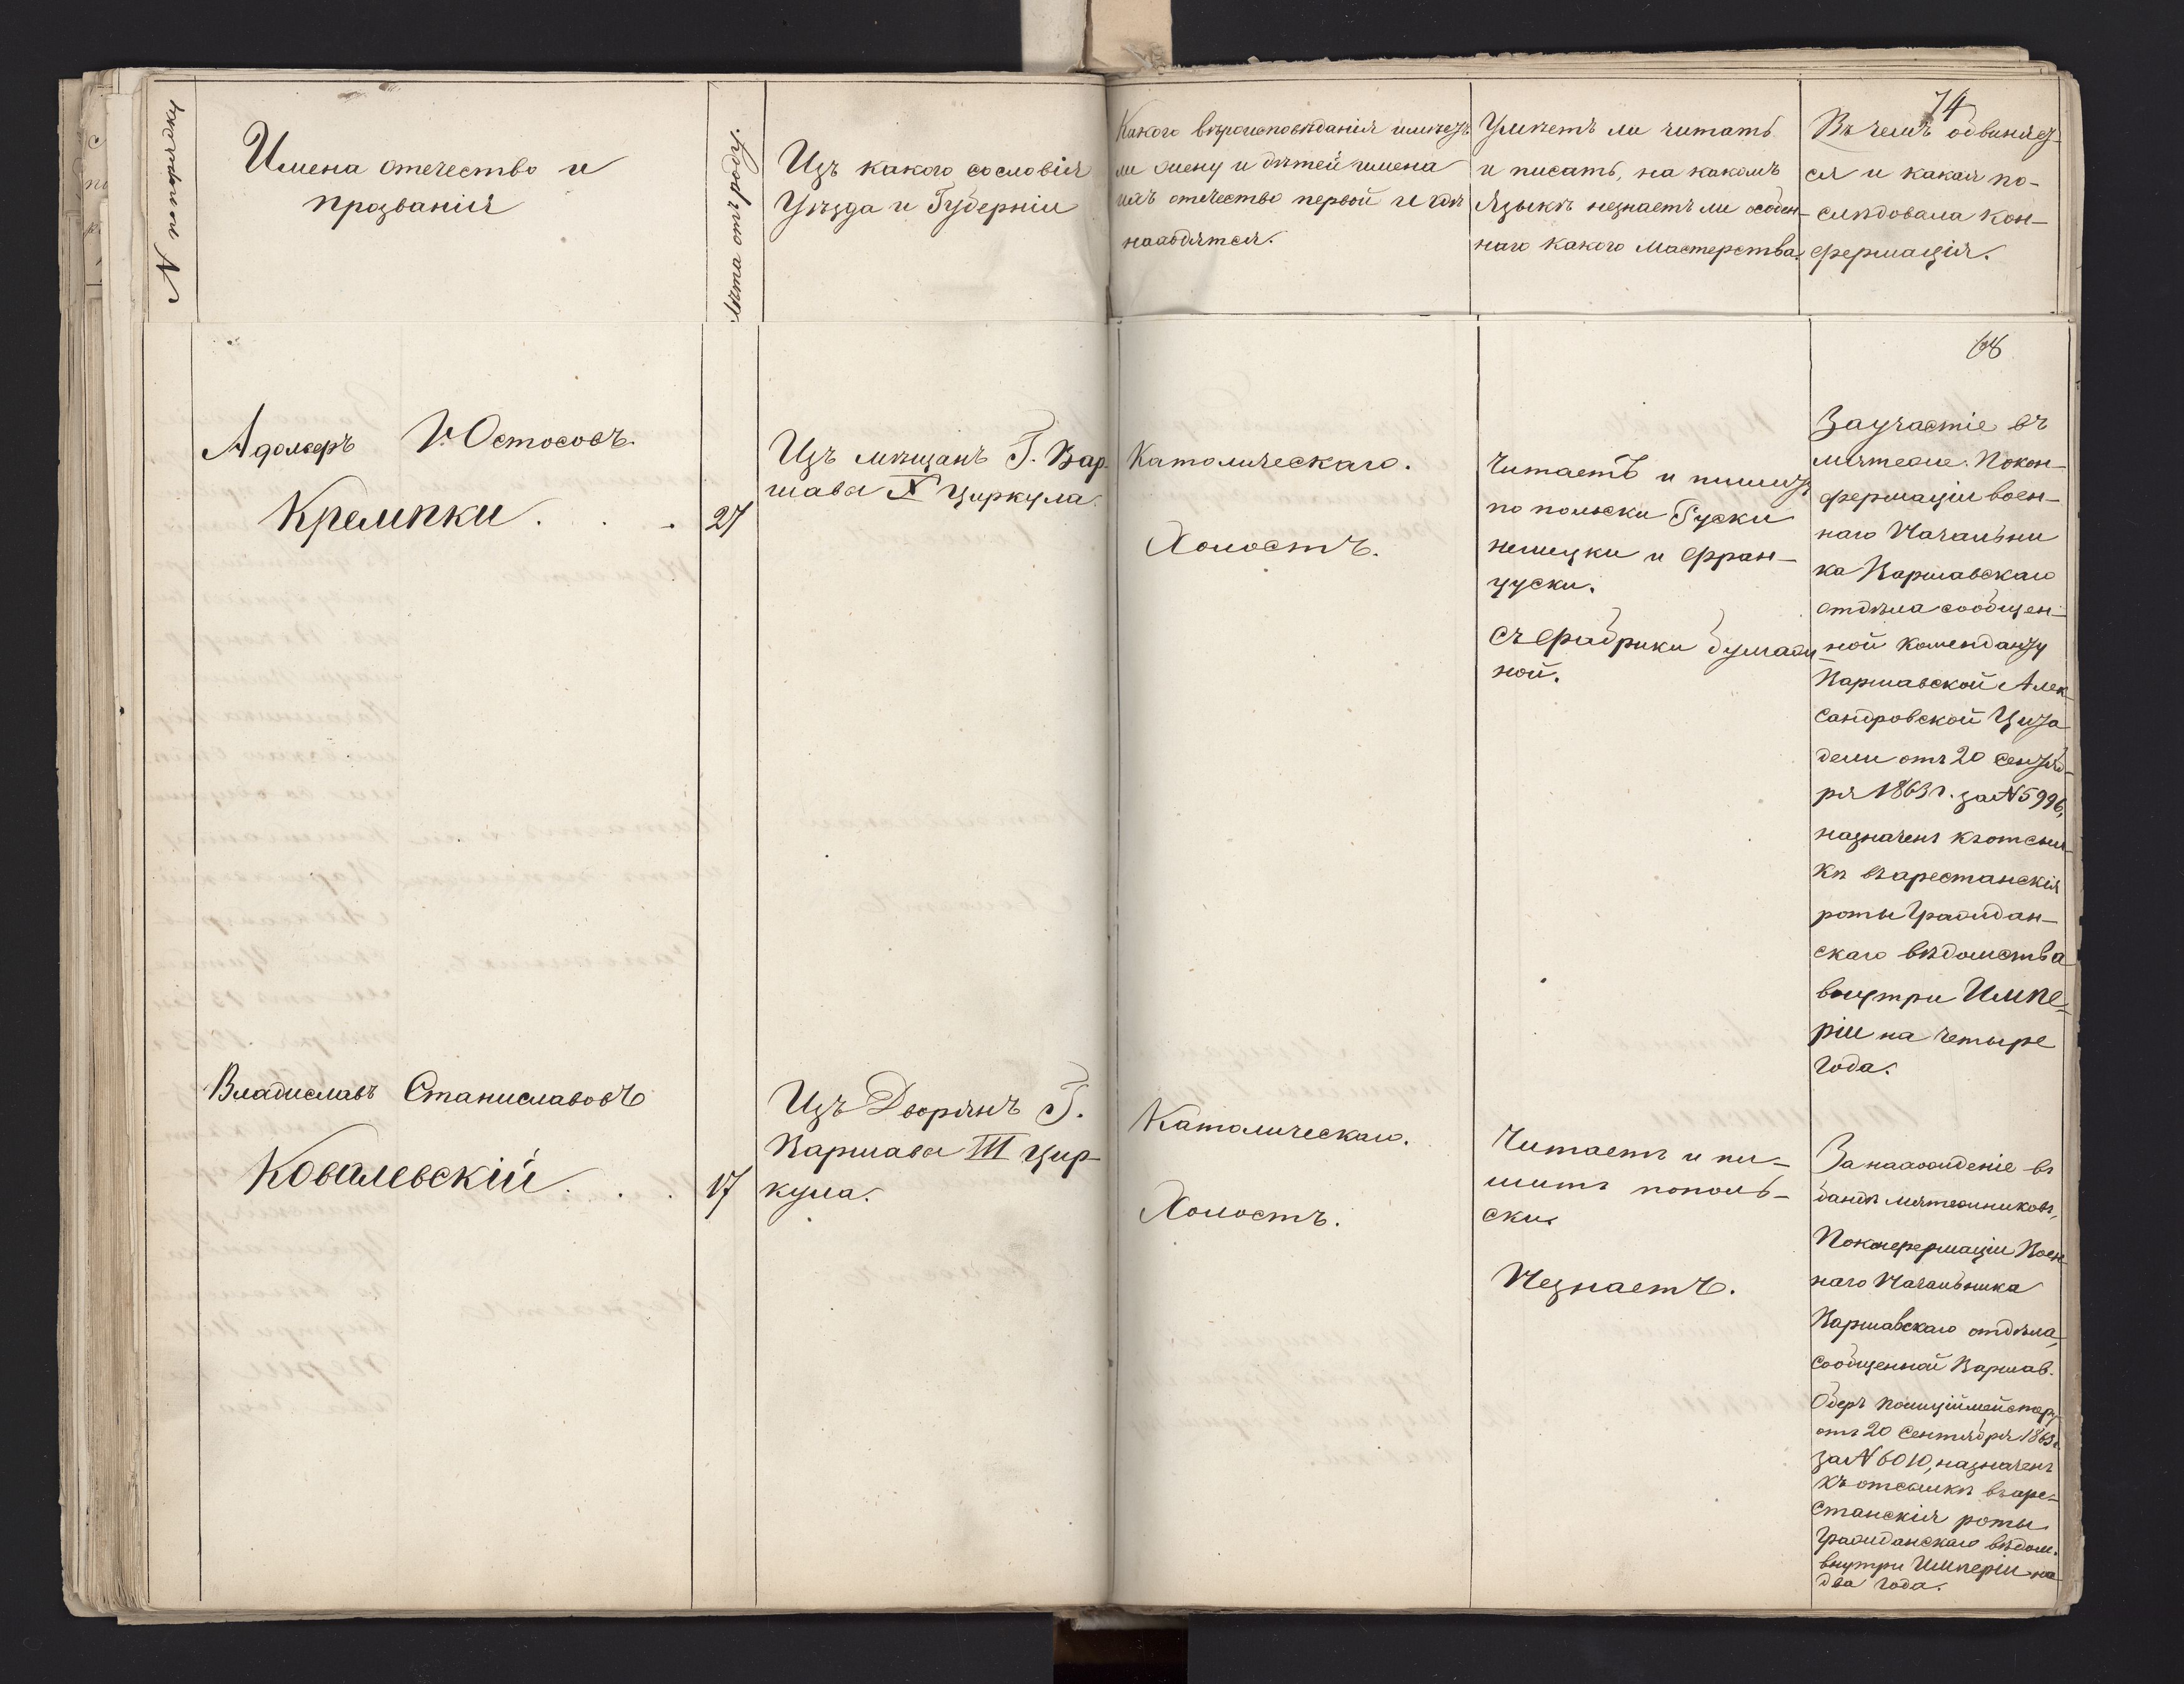 № по порядку
Имена отечество и
прозванія
Лѣта отъ роду.
Изъ какого сословія
Уѣзда и Губерніи
Какого вѣроисповѣданія имѣетъ
ли жену и дѣтей имена
ихъ отечество первой и гдѣ
находятся.
Умѣетъ ли читать
и писать, на какомъ
Языкѣ незнаетъ ли особен-
наго какого мастерства.
74
Въ чемъ обвиняет-
ся и какая по-
слѣдовала кон-
фермація.
68
Адольфъ Юстосовъ
Кремпки . . .
27
Изъ мѣщанъ Г. Вар-
шавы X Циркула.
Католическаго.
Холостъ.
Читаетъ и пишетъ
по польски Руски
немецки и фран-
цуски.
съ фабрики бумаж
ной.
За участіе въ
мятеже. По кон-
фермаціи воен-
наго Начальни
ка Варшавскаго
отдѣла сообщен-
ной Коменданту
Варшавской Алек-
сандровской Цита
дели отъ 20 Сентяб-
ря 1863 г. за № 5996,
назначенъ къ отсыл-
кѣ въ арестанскія
роты Граждан-
скаго вѣдомства
внутри Импе-
ріи на четыре
года.
Владиславъ Станиславовъ
Ковалевскій . . .
17
Изъ Дворянъ Г.
Варшавы III Цир-
кула.
Католическаго.
Холостъ.
Читаетъ и пи-
шитъ по поль-
ски.
Незнаетъ.
За нахожденіе въ
бандѣ мятежниковъ,
По конфермаціи Воен-
наго Начальника
Варшавскаго отдѣла,
сообщенной Варшав.
Оберъ Полиціймейстеру
отъ 20 Сентября 1863 г.
за № 6010, назначенъ
къ отсылкѣ въ аре-
станскія роты
Гражданскаго вѣдом.
внутри Имперіи на
два года.